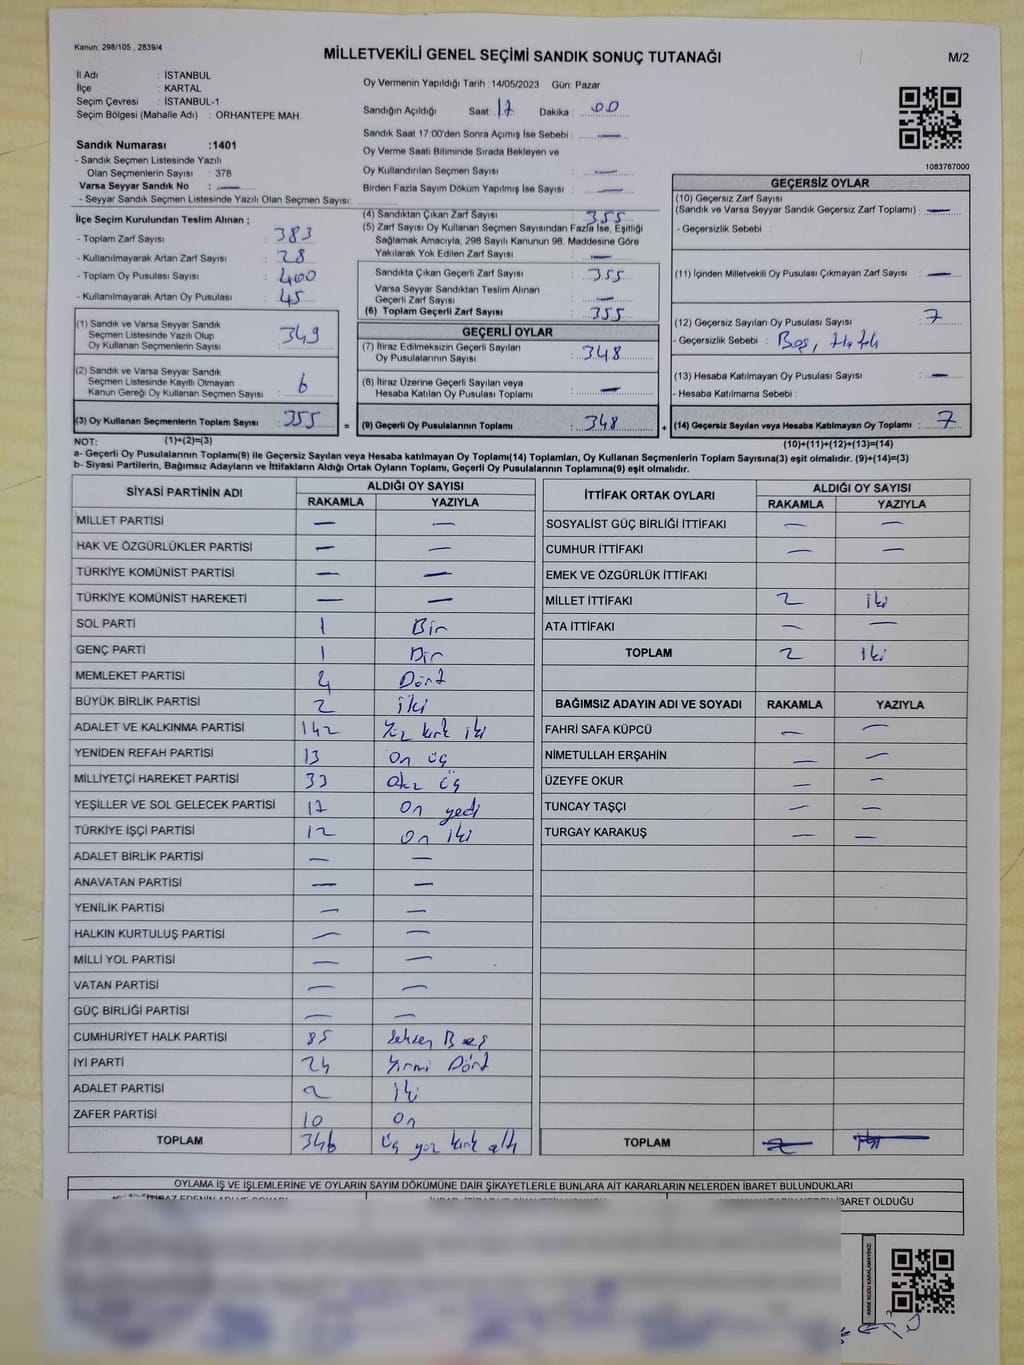 Kanun; 298/105 , 2839/4
MİLLETVEKİLİ GENEL SEÇİMİ SANDIK SONUÇ TUTANAĞI
M/2
İl Adı : İSTANBUL
İlçe : KARTAL
Seçim Çevresi : İSTANBUL-1
Seçim Bölgesi (Mahalle Adı) : ORHANTEPE MAH.
Oy Vermenin Yapıldığı Tarih : 14/05/2023 Gün: Pazar
Sandığın Açıldığı Saat : 17 Dakika : 00
Sandık Saat 17:00'den Sonra Açımış İse Sebebi : —
Oy Verme Saati Bitiminde Sırada Bekleyen ve
Oy Kullandırılan Seçmen Sayısı : —
Birden Fazla Sayım Döküm Yapılmış İse Sayısı : —
1083787000
Sandık Numarası : 1401
- Sandık Seçmen Listesinde Yazılı
Olan Seçmenlerin Sayısı : 378
Varsa Seyyar Sandık No : —
- Seyyar Sandık Seçmen Listesinde Yazılı Olan Seçmen Sayısı:
İlçe Seçim Kurulundan Teslim Alınan ;
- Toplam Zarf Sayısı : 383
- Kullanılmayarak Artan Zarf Sayısı : 28
- Toplam Oy Pusulası Sayısı : 400
- Kullanılmayarak Artan Oy Pusulası : 45
(1) Sandık ve Varsa Seyyar Sandık
Seçmen Listesinde Yazılı Olup
Oy Kullanan Seçmenlerin Sayısı : 349
(2) Sandık ve Varsa Seyyar Sandık
Seçmen Listesinde Kayıtlı Olmayan
Kanun Gereği Oy Kullanan Seçmen Sayısı : 6
(3) Oy Kullanan Seçmenlerin Toplam Sayısı : 355 =
(4) Sandıktan Çıkan Zarf Sayısı : 355
(5) Zarf Sayısı Oy Kullanan Seçmen Sayısından Fazla İse, Eşitliği
Sağlamak Amacıyla, 298 Sayılı Kanunun 98. Maddesine Göre
Yakılarak Yok Edilen Zarf Sayısı : —
Sandıkta Çıkan Geçerli Zarf Sayısı : 355
Varsa Seyyar Sandıktan Teslim Alınan
Geçerli Zarf Sayısı : —
(6) Toplam Geçerli Zarf Sayısı : 355
GEÇERLİ OYLAR
(7) İtiraz Edilmeksizin Geçerli Sayılan
Oy Pusulalarının Sayısı : 348
(8) İtiraz Üzerine Geçerli Sayılan veya
Hesaba Katılan Oy Pusulası Toplamı : —
(9) Geçerli Oy Pusulalarının Toplamı : 348 +
GEÇERSİZ OYLAR
(10) Geçersiz Zarf Sayısı
(Sandık ve Varsa Seyyar Sandık Geçersiz Zarf Toplamı) : —
- Geçersizlik Sebebi :
(11) İçinden Milletvekili Oy Pusulası Çıkmayan Zarf Sayısı : —
(12) Geçersiz Sayılan Oy Pusulası Sayısı : 7
- Geçersizlik Sebebi : Boş,
(13) Hesaba Katılmayan Oy Pusulası Sayısı : —
- Hesaba Katılmama Sebebi :
(14) Geçersiz Sayılan veya Hesaba Katılmayan Oy Toplamı : 7
NOT: (1)+(2)=(3)
(10)+(11)+(12)+(13)=(14)
a- Geçerli Oy Pusulalarının Toplamı(9) ile Geçersiz Sayılan veya Hesaba katılmayan Oy Toplamı(14) Toplamları, Oy Kullanan Seçmenlerin Toplam Sayısına(3) eşit olmalıdır. (9)+(14)=(3)
b- Siyasi Partilerin, Bağımsız Adayların ve İttifakların Aldığı Ortak Oyların Toplamı, Geçerli Oy Pusulalarının Toplamına(9) eşit olmalıdır.
SİYASİ PARTİNİN ADI ALDIĞI OY SAYISI
RAKAMLA YAZIYLA
MİLLET PARTİSİ — —
HAK VE ÖZGÜRLÜKLER PARTİSİ — —
TÜRKİYE KOMÜNİST PARTİSİ — —
TÜRKİYE KOMÜNİST HAREKETİ — —
SOL PARTİ 1 Bir
GENÇ PARTİ 1 Bir
MEMLEKET PARTİSİ 4 Dört
BÜYÜK BİRLİK PARTİSİ 2 iki
ADALET VE KALKINMA PARTİSİ 142 Yüz kırk iki
YENİDEN REFAH PARTİSİ 13 On üç
MİLLİYETÇİ HAREKET PARTİSİ 33 otuz üç
YEŞİLLER VE SOL GELECEK PARTİSİ 17 On yedi
TÜRKİYE İŞÇİ PARTİSİ 12 On iki
ADALET BİRLİK PARTİSİ — —
ANAVATAN PARTİSİ — —
YENİLİK PARTİSİ — —
HALKIN KURTULUŞ PARTİSİ — —
MİLLİ YOL PARTİSİ — —
VATAN PARTİSİ — —
GÜÇ BİRLİĞİ PARTİSİ — —
CUMHURİYET HALK PARTİSİ 85 Seksen Beş
İYİ PARTİ 24 Yirmi Dört
ADALET PARTİSİ 2 iki
ZAFER PARTİSİ 10 On
TOPLAM 346 üç yüz kırk altı
İTTİFAK ORTAK OYLARI ALDIĞI OY SAYISI
RAKAMLA YAZIYLA
SOSYALİST GÜÇ BİRLİĞİ İTTİFAKI — —
CUMHUR İTTİFAKI — —
EMEK VE ÖZGÜRLÜK İTTİFAKI
MİLLET İTTİFAKI 2 iki
ATA İTTİFAKI — —
TOPLAM 2 iki
BAĞIMSIZ ADAYIN ADI VE SOYADI RAKAMLA YAZIYLA
FAHRİ SAFA KÜPCÜ — —
NİMETULLAH ERŞAHİN — —
ÜZEYFE OKUR — —
TUNCAY TAŞÇI — —
TURGAY KARAKUŞ — —
TOPLAM
OYLAMA İŞ VE İŞLEMLERİNE VE OYLARIN SAYIM DÖKÜMÜNE DAİR ŞİKAYETLERLE BUNLARA AİT KARARLARIN NELERDEN İBARET BULUNDUKLARI
İBARET OLDUĞU
KARE KODU KARALAMAYINIZ!